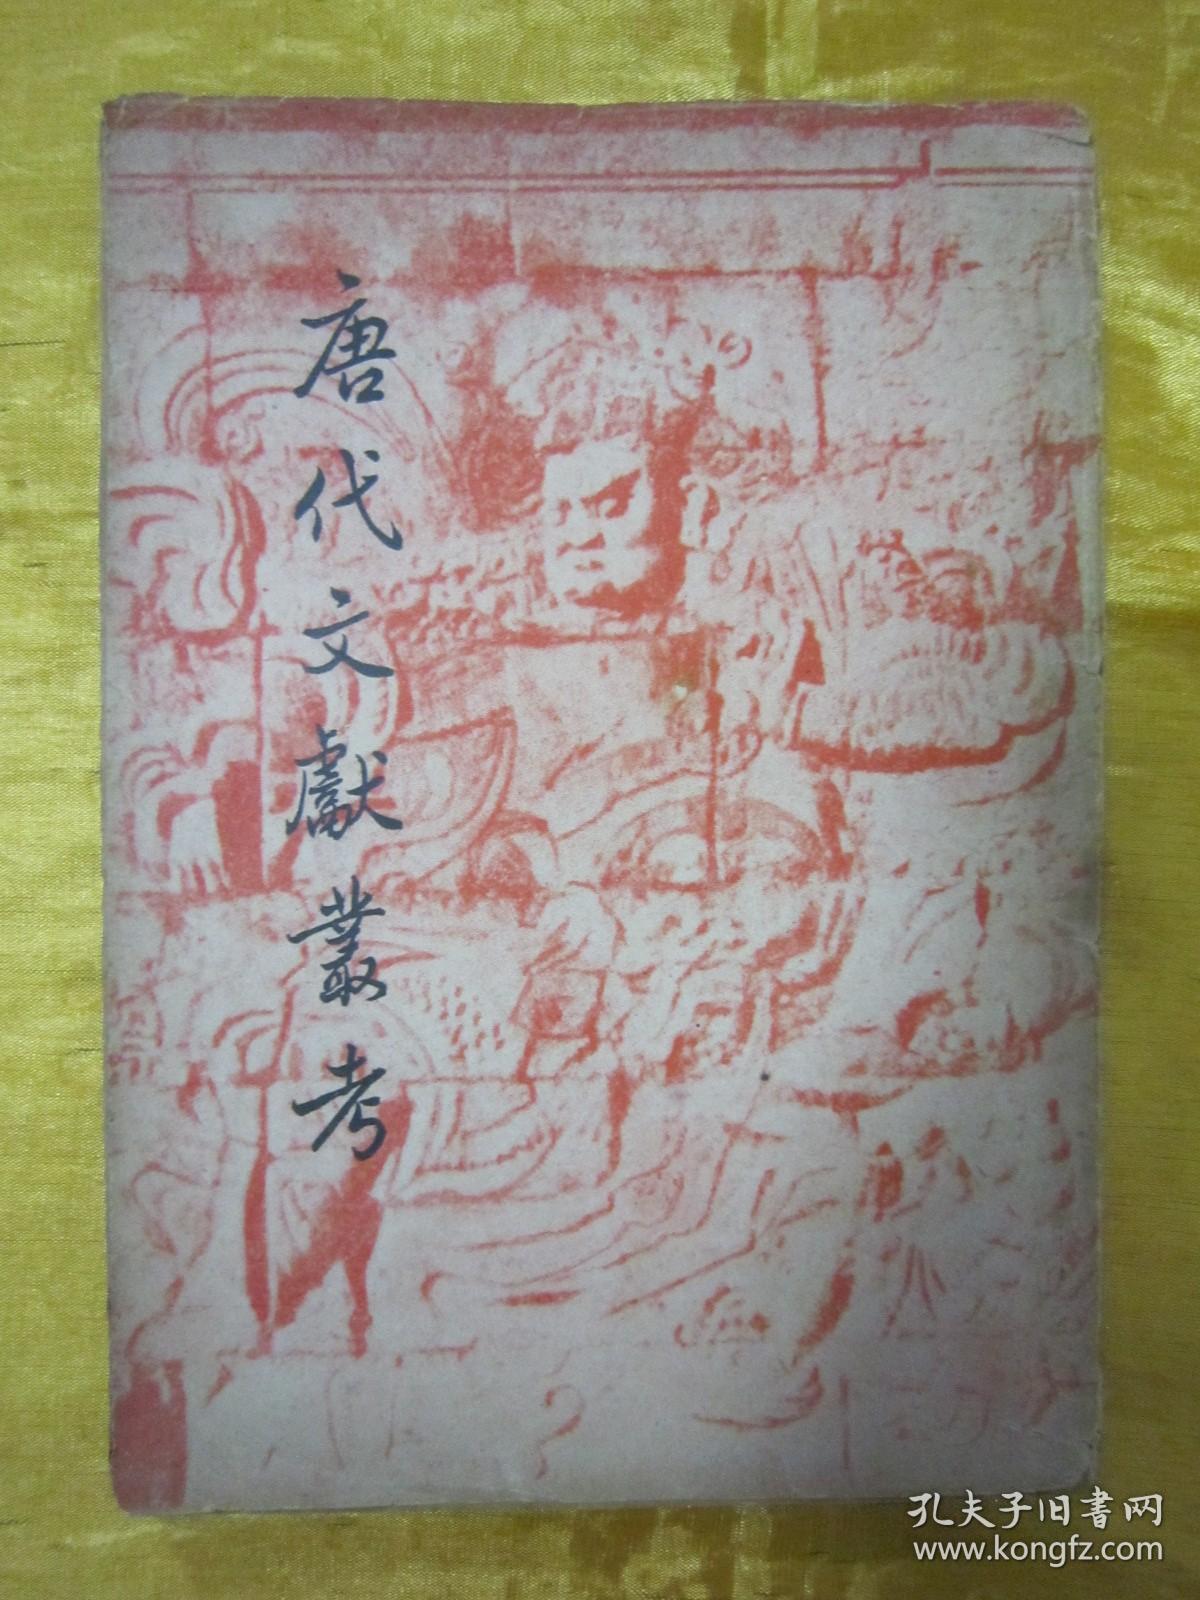 唐代文獻叢考
孔夫子旧書网
www.kongfz.com